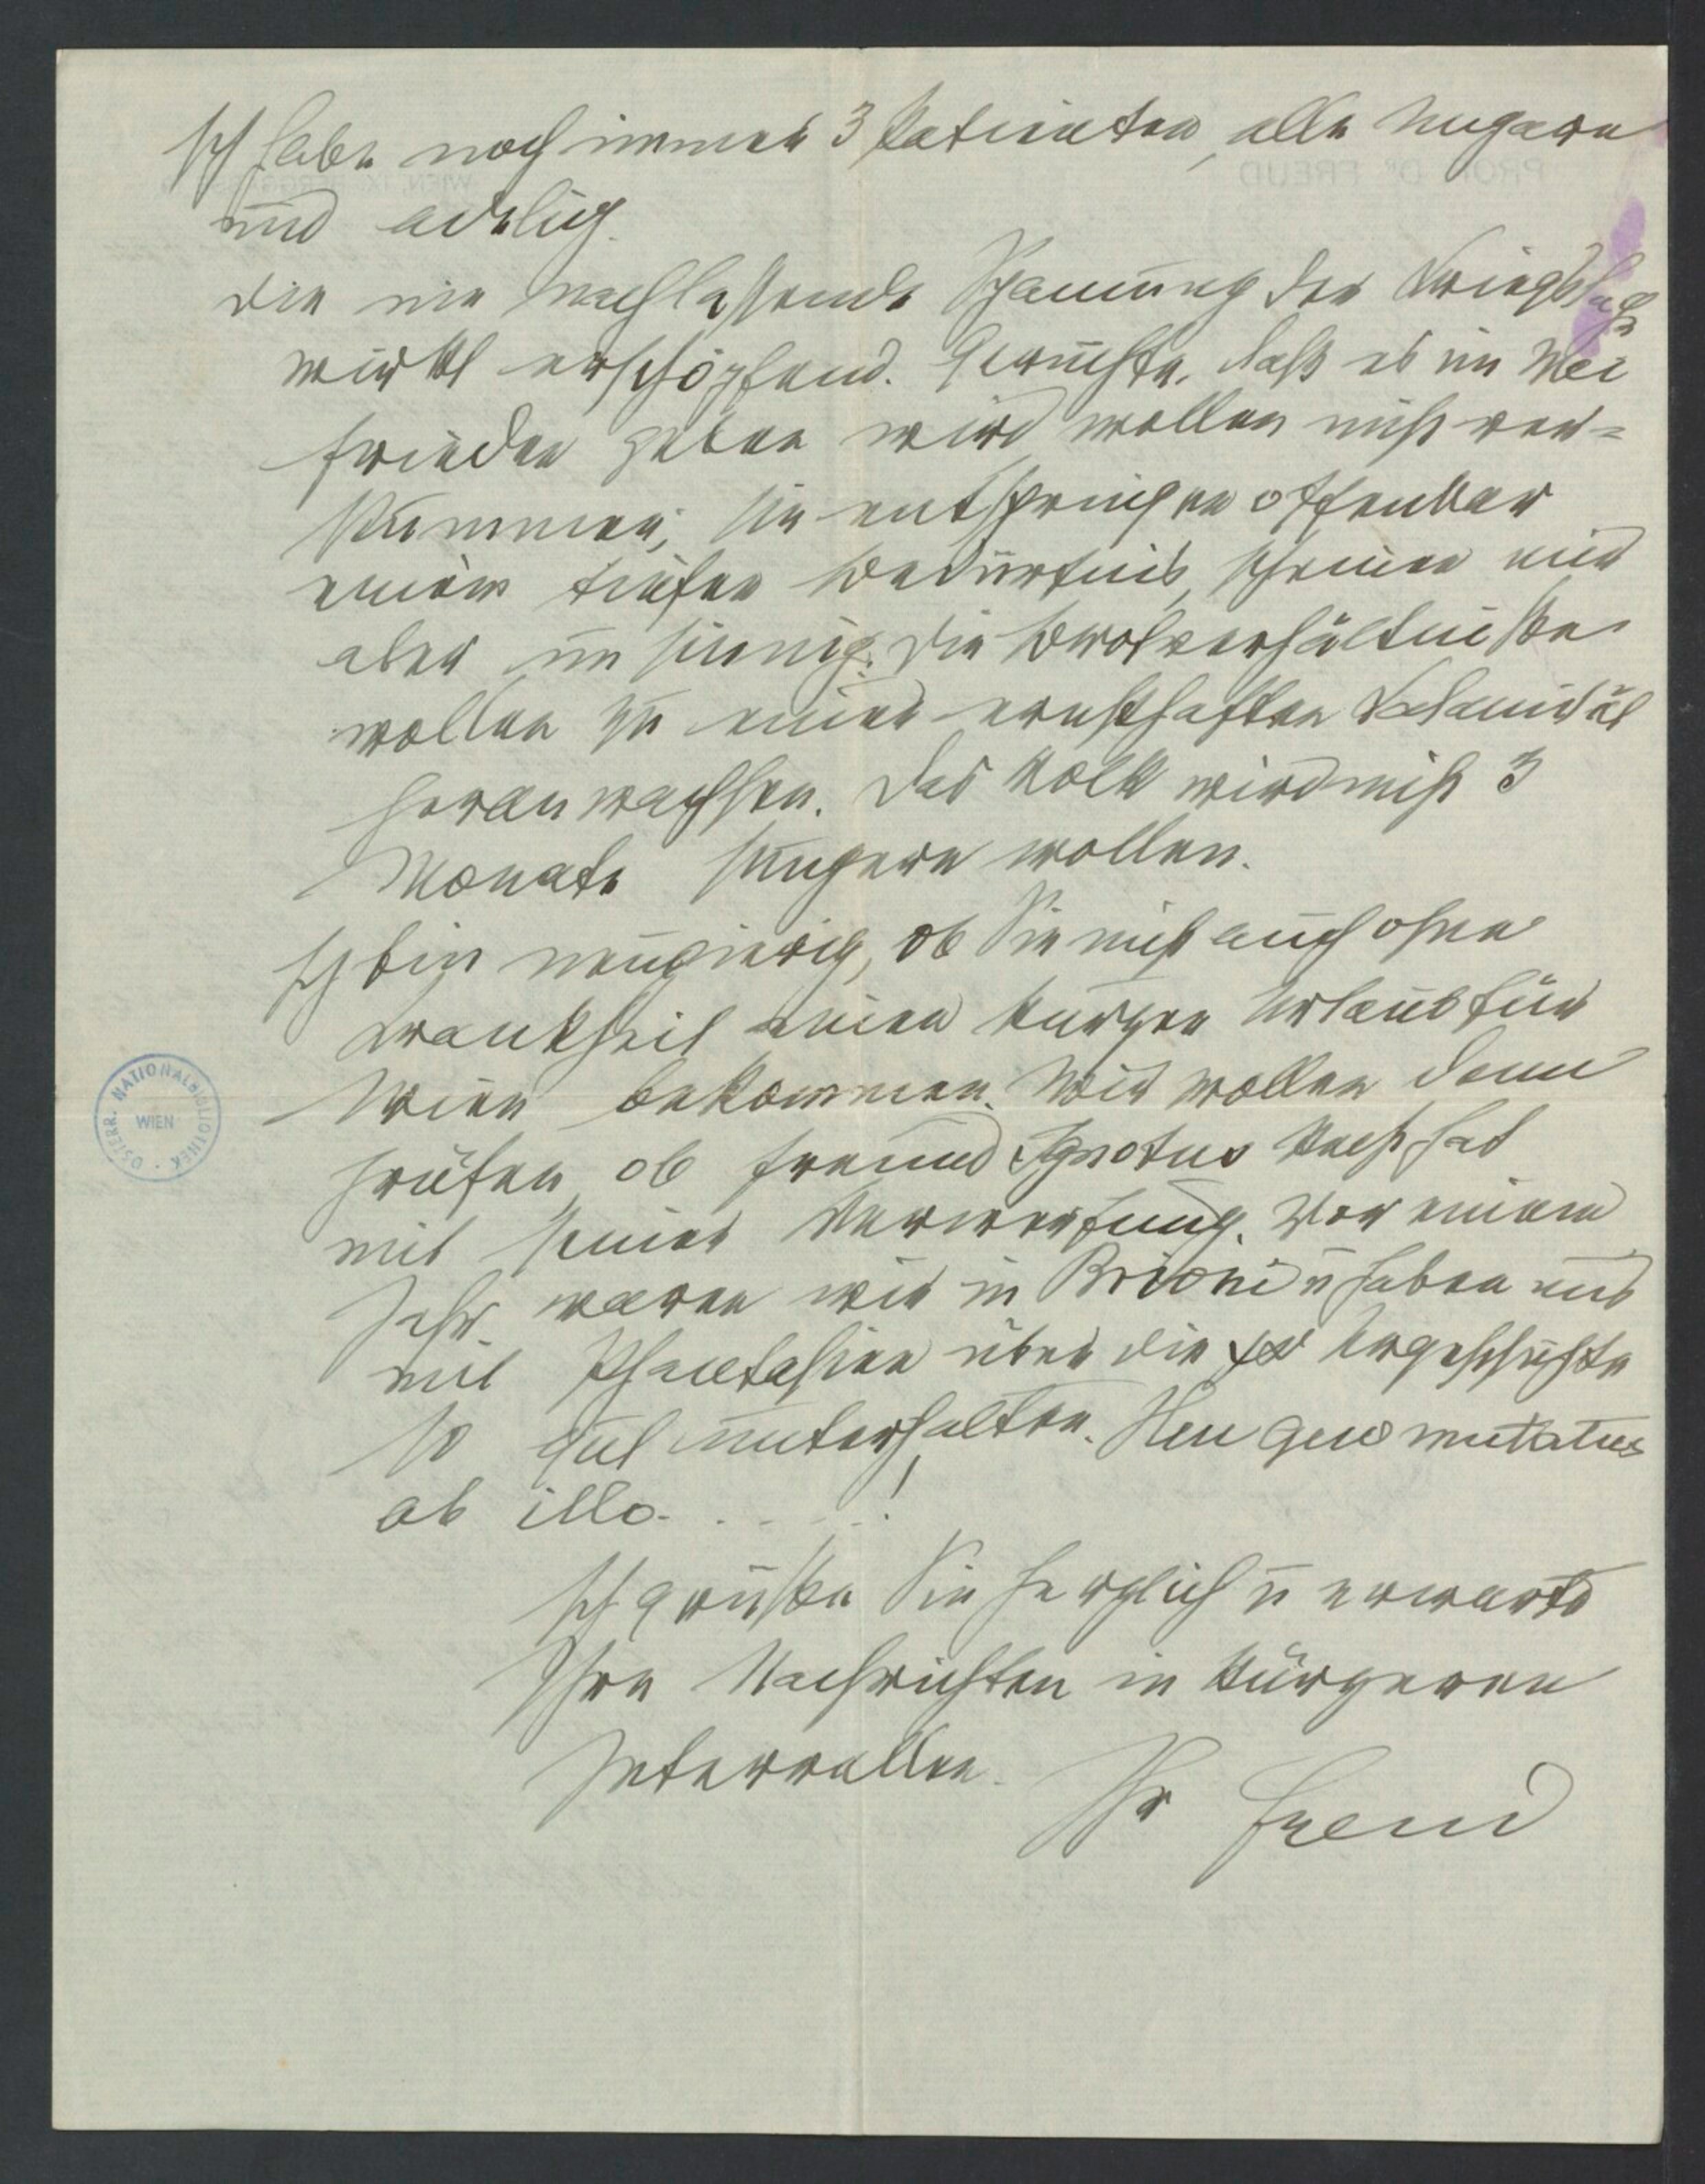 Ich habe noch immer 3 Patienten, alle Ungarn
und adelig.
Die nie nachlassende Spannung der Kriegslage
wirkt erschöpfend. Gerüchte, daß es im Mai
Frieden geben wird, wollen nicht ver=
stummen; sie entspringen offenbar
einem tiefen Bedürfnis, scheinen mir
aber unsinnig. Die Brotverhältnisse
wollen zu einer ernsthaften Kalamität
heranwachsen. Das Volk wird nicht 3
Monate hungern wollen.
Ich bin neugierig, ob Sie nicht auch ohne
Krankheit einen kurzen Urlaub für
Wien bekommen. Wir wollen dann
prüfen, ob Freund Ignotus Recht hat
mit seiner Verwerfung. Vor einem
Jahr waren wir in Brioni u haben uns
mit Phantasien über die Urgeschichte
so gut unterhalten. Heu quo mutatus
ab illo.....!
Ich grüße Sie herzlich u erwarte
Ihre Nachrichten in kürzeren
Intervallen.
Ihr Freud
ÖSTERR. NATIONALBIBLIOTHEK
WIEN
PROF. Dr FREUD